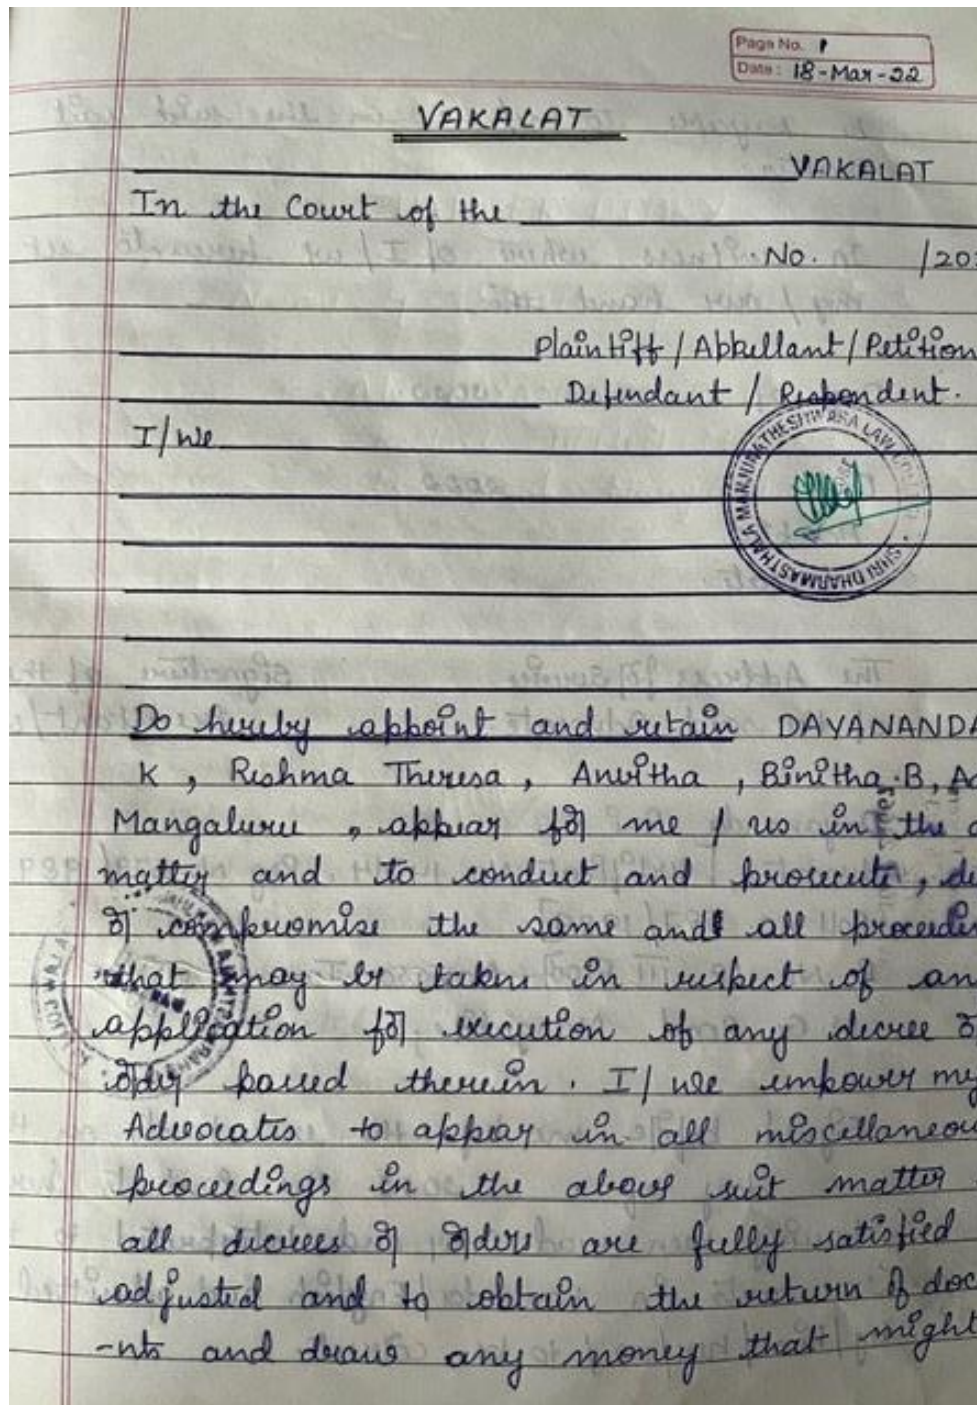 Page No. 1
Date: 18-Mar-22
VAKALAT
VAKALAT
In the Court of the
No. /20
Plaintiff / Appellant / Petition
Defendant / Respondent.
I/we
SHRI DHARMASTHALA MANJUNATHESHWARA LAW
Do hereby appoint and retain DAYANANDA
K, Reshma Theresa, Anvitha, Binitha.B, A
Mangaluru, appear for me / us in the
matter and to conduct and prosecute, de
or compromise the same and all proceedin
that may be taken in respect of an
application for execution of any decree or
order passed therein. I/we empower my
Advocates to appear in all miscellaneou
proceedings in the above suit matter
all decrees or orders are fully satisfied
adjusted and to obtain the return of doc
-nts and draw any money that might